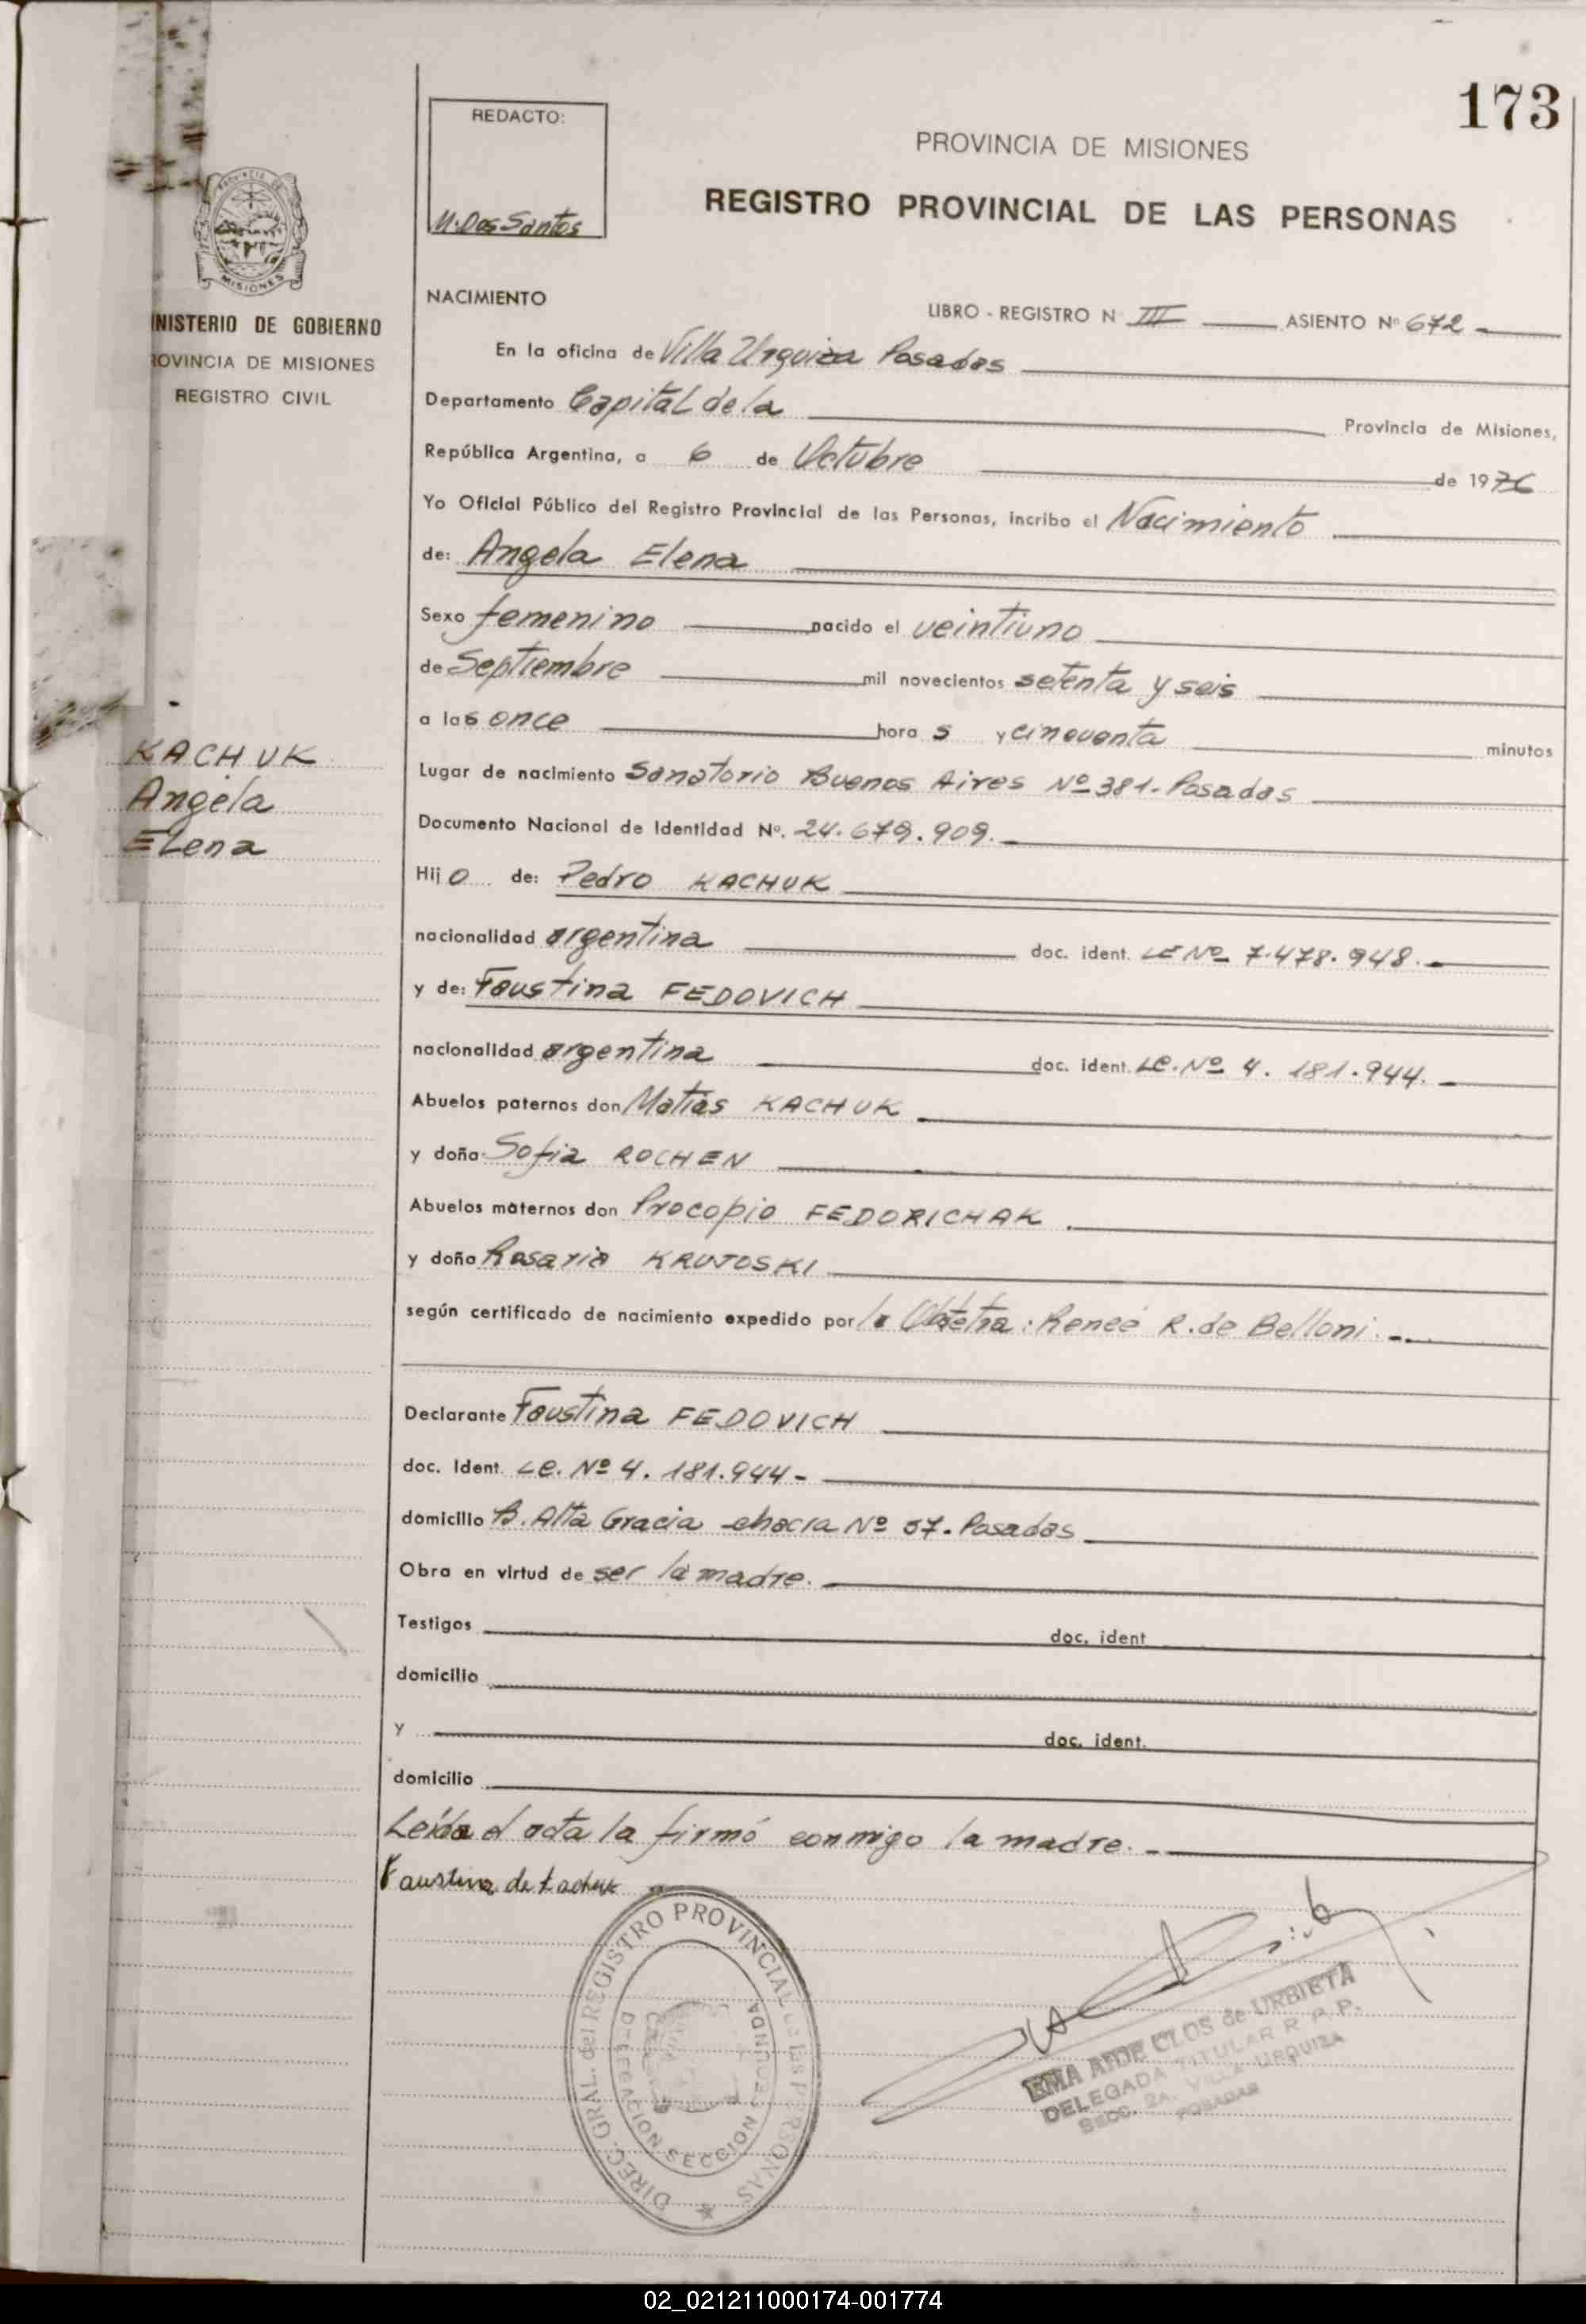 173
REDACTO:
M. Dos Santos
PROVINCIA DE MISIONES
REGISTRO PROVINCIAL DE LAS PERSONAS
MISIONES
NISTERIO DE GOBIERNO
ROVINCIA DE MISIONES
REGISTRO CIVIL
KACHUK
Angela
Elena
NACIMIENTO
LIBRO - REGISTRO N III ASIENTO Nº 672
En la oficina de Villa Urquiza Posadas
Departamento Capital de la Provincia de Misiones,
República Argentina, a 6 de Octubre de 1976
Yo Oficial Público del Registro Provincial de las Personas, incribo el Nacimiento
de: Angela Elena
Sexo femenino nacido el veintiuno
de Septiembre mil novecientos setenta y seis
a las once hora s y cincuenta minutos
Lugar de nacimiento Sanatorio Buenos Aires Nº 381- Posadas
Documento Nacional de Identidad Nº. 24.679.909.
Hijo de: Pedro KACHUK
nacionalidad argentina doc. ident. LE Nº 7.478.948.-
y de: Faustina FEDOVICH
nacionalidad argentina doc. ident. LE. Nº 4. 181.944.-
Abuelos paternos don Matías KACHUK
y doña Sofia ROCHEN
Abuelos maternos don Procopio FEDORICHAK
y doña Rosaria KRUJOSKI
según certificado de nacimiento expedido por la Obstetra: Reneé R. de Belloni.-
Declarante Faustina FEDOVICH
doc. Ident. LE. Nº 4. 181.944-
domicilio B. Alta Gracia chacra Nº 57. Posadas
Obra en virtud de ser la madre.
Testigos doc. ident
domicilio
y doc. ident.
domicilio
Leída el acta la firmó conmigo la madre.-
Faustina de Kachuk
DIREC. GRAL. del REGISTRO PROVINCIAL de las PERSONAS
DELEGACION SECCION SEGUNDA
EMA AIDE CLOS de URBIETA
DELEGADA TITULAR R.P.P.
SECC. 2A. VILLA URQUIZA
POSADAS
02_021211000174-001774